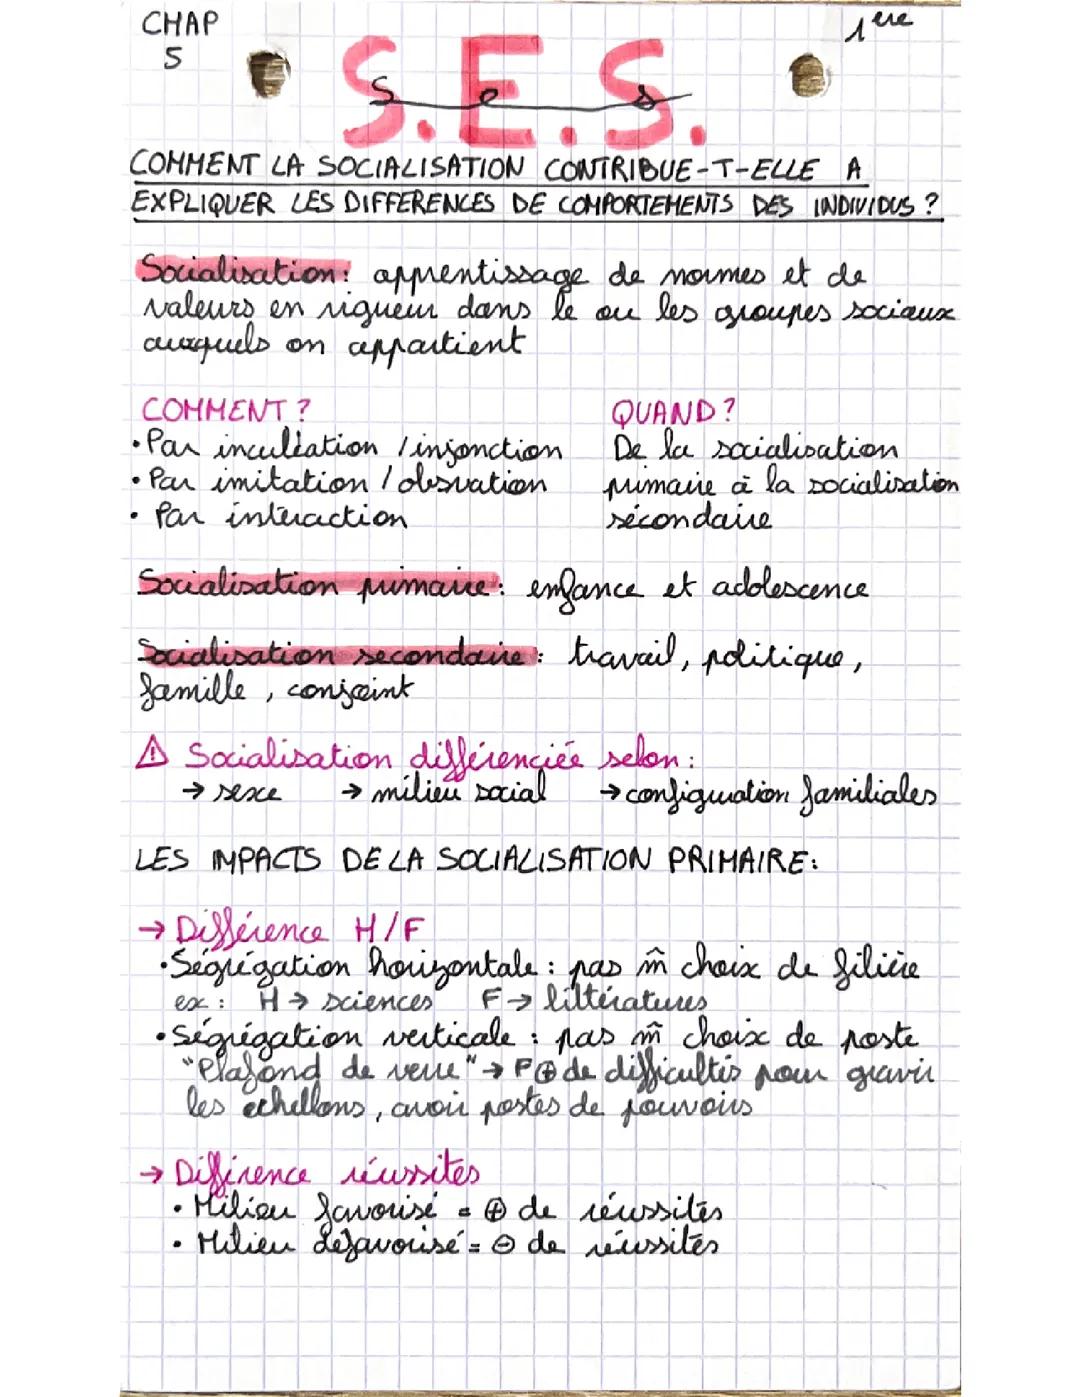 CHAP
5
1ère
S.E.S.
s e s
COMMENT LA SOCIALISATION CONTRIBUE-T-ELLE A
EXPLIQUER LES DIFFERENCES DE COMPORTEMENTS DES INDIVIDUS ?
Socialisation: apprentissage de normes et de
valeurs en vigueur dans le ou les groupes sociaux
auxquels on appartient
COMMENT ?
• Par inculcation / injonction
• Par imitation / obsvation
• Par interaction
QUAND ?
De la socialisation
primaire à la socialisation
secondaire
Socialisation primaire: enfance et adolescence
Socialisation secondaire: travail, politique,
famille, conjoint
⚠ Socialisation différenciée selon:
→ sexe → milieu social → configuration familiales
LES IMPACTS DE LA SOCIALISATION PRIMAIRE:
→ Différence H/F
• Ségrégation horizontale : pas m̂ choix de filière
ex : H → sciences F → littératures
• Ségrégation verticale : pas m̂ choix de poste
"Plafond de verre" → F ⊕ de difficultés pour gravir
les echellons, avoir postes de pouvoirs
→ Différence réussites
• Milieu favorisé = ⊕ de réussites
• Milieu défavorisé = ⊖ de réussites